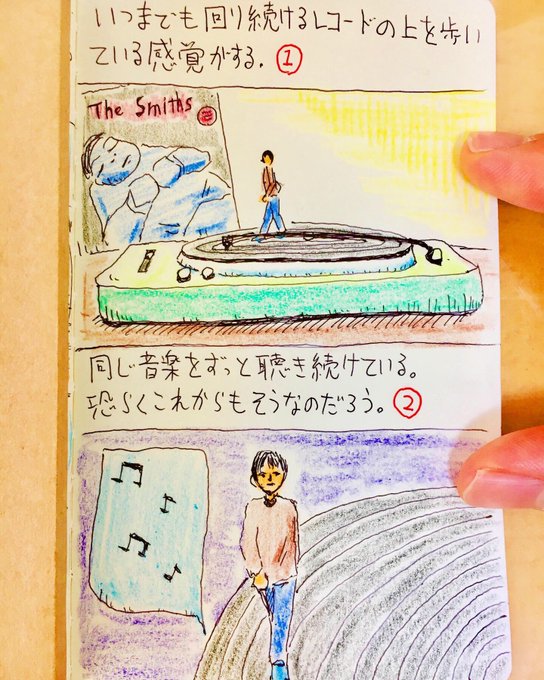 いつまでも回り続けるレコードの上を歩い
ている感覚がする。①
The Smiths
同じ音楽をずっと聴き続けている。
恐らくこれからもそうなのだろう。②